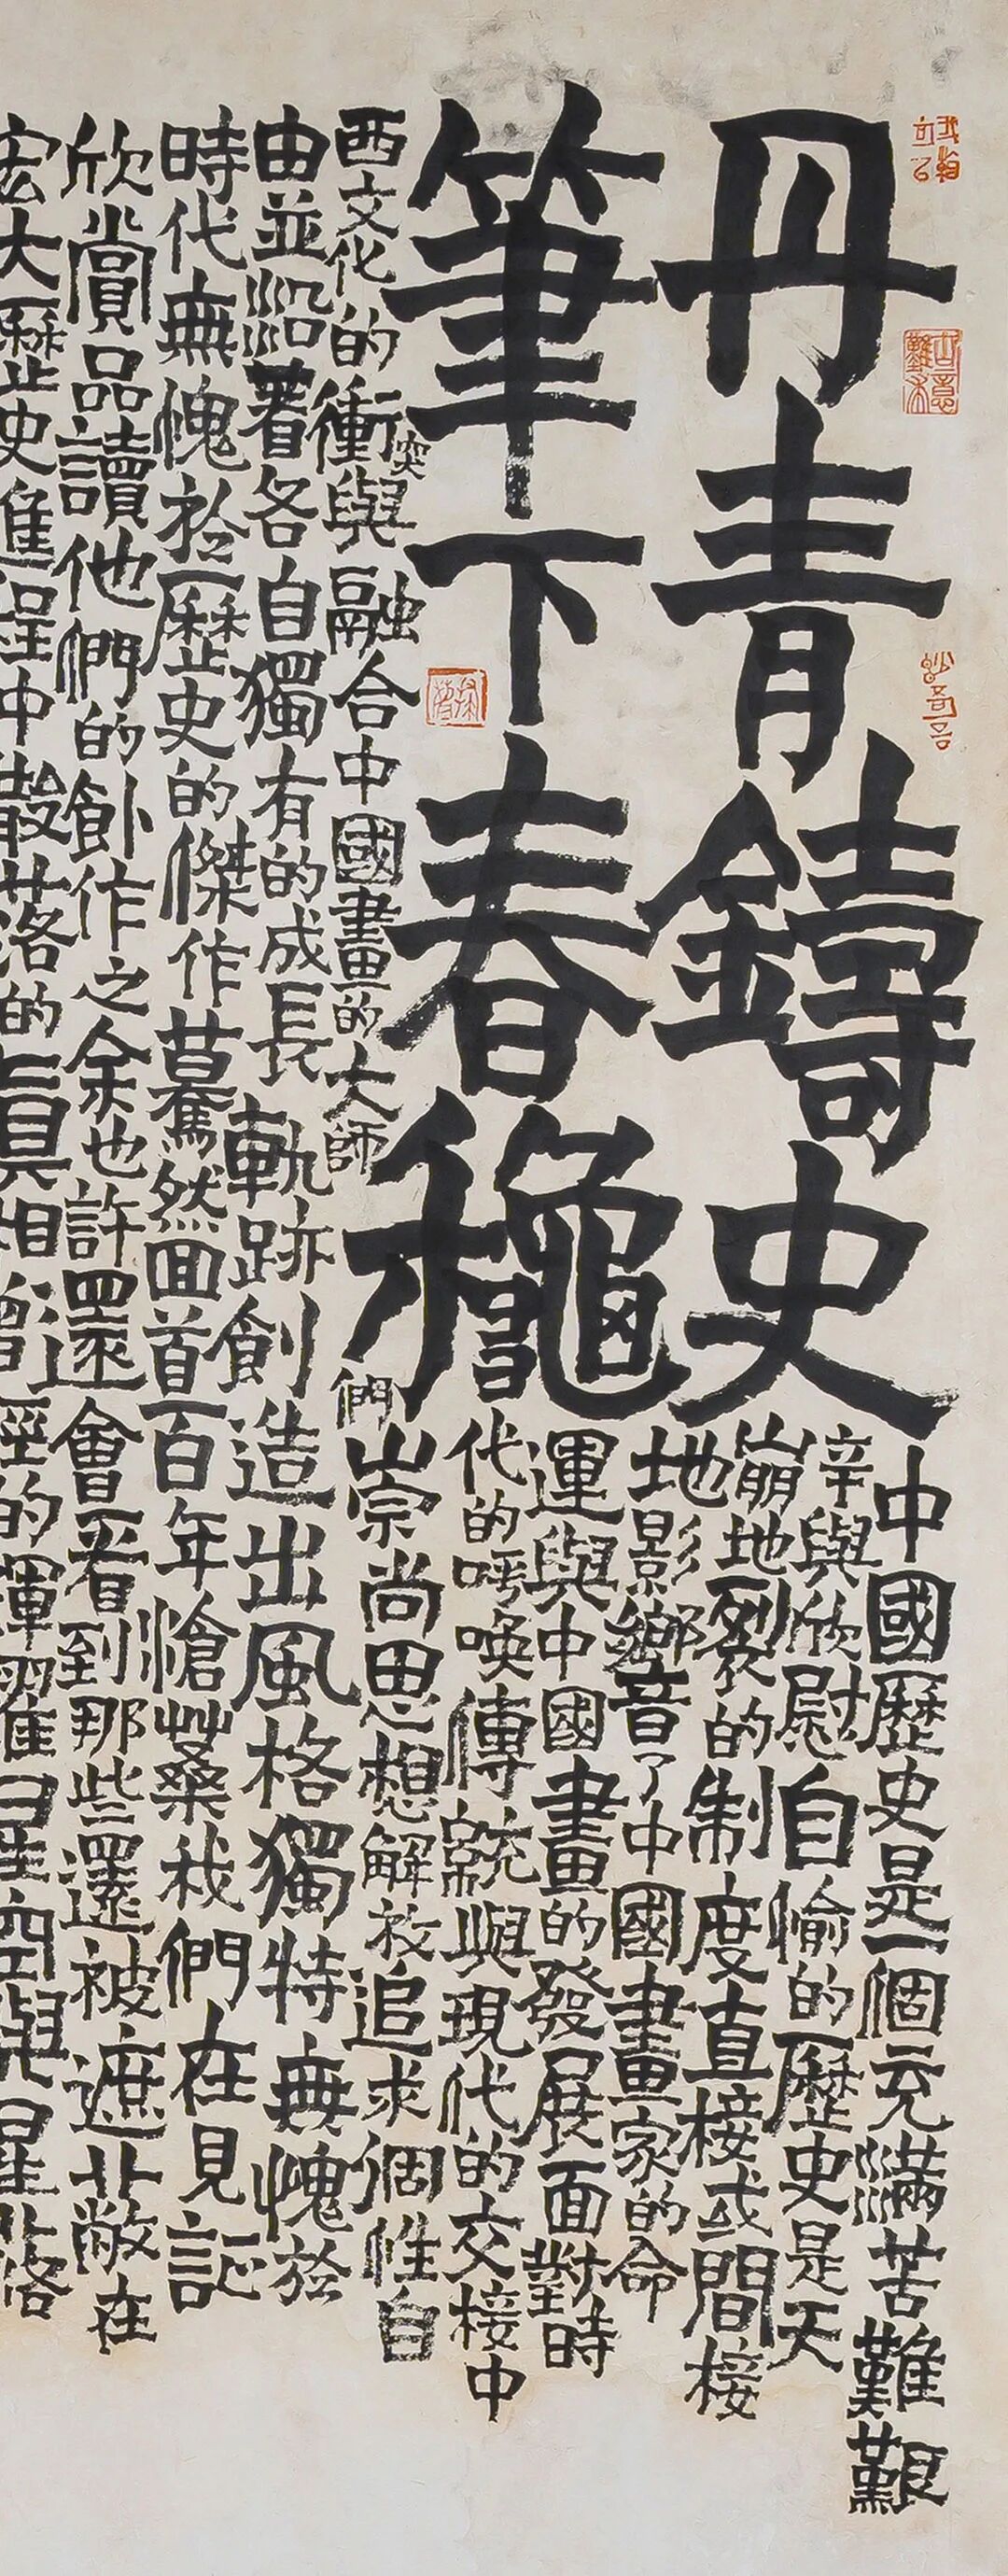 丹青鑄史
筆下春龝
中國歷史是一個充滿苦難艱
辛與欣慰自愉的歷史是天
崩地裂的制度直接或間接
地影響了中國畫家的命
運與中國畫的發展面對時
代的呼喚傳統與現代的交接中
西文化的衝突與融合中國畫的大師們崇尚思想解放追求個性自
由並沿著各自獨有的成長軌跡創造出風格獨特無愧於
時代無愧於歷史的傑作驀然回首一百年滄桑我們在見証
欣賞品讀他們的創作之余也許還會看到那些還被遮蔽在
宏大歷史進程中散落的真相曾經的輝耀星空與星落